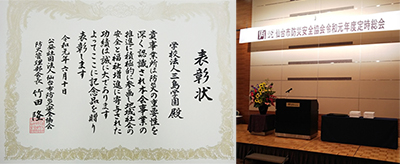 表彰状
学校法人三島学園 殿
貴事業所は防火の重要性を
深く認識され本会事業の
推進に積極的に参画し地域社会の
安全と福祉増進に寄与された
功績は誠に大であります
よってここに記念品を贈り
表彰します
令和元年六月十日
公益社団法人仙台市防災安全協会
防火管理部会長 竹田 隆
仙台市防災安全協会令和元年度定時総会